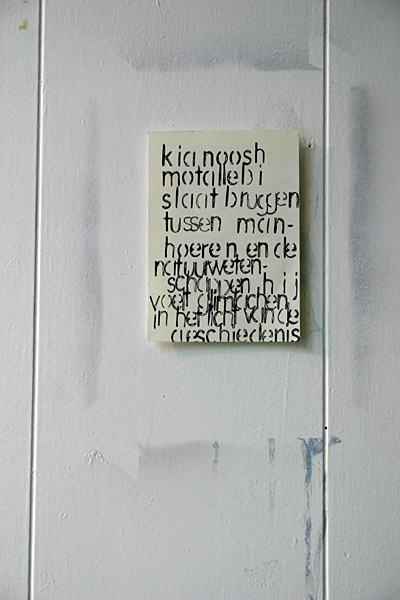 kianoosh
motallebi
slaat bruggen
tussen man-
hoeren en de
natuurweten-
schappen hij
voet glimlachen
in het licht van de
geschiedenis